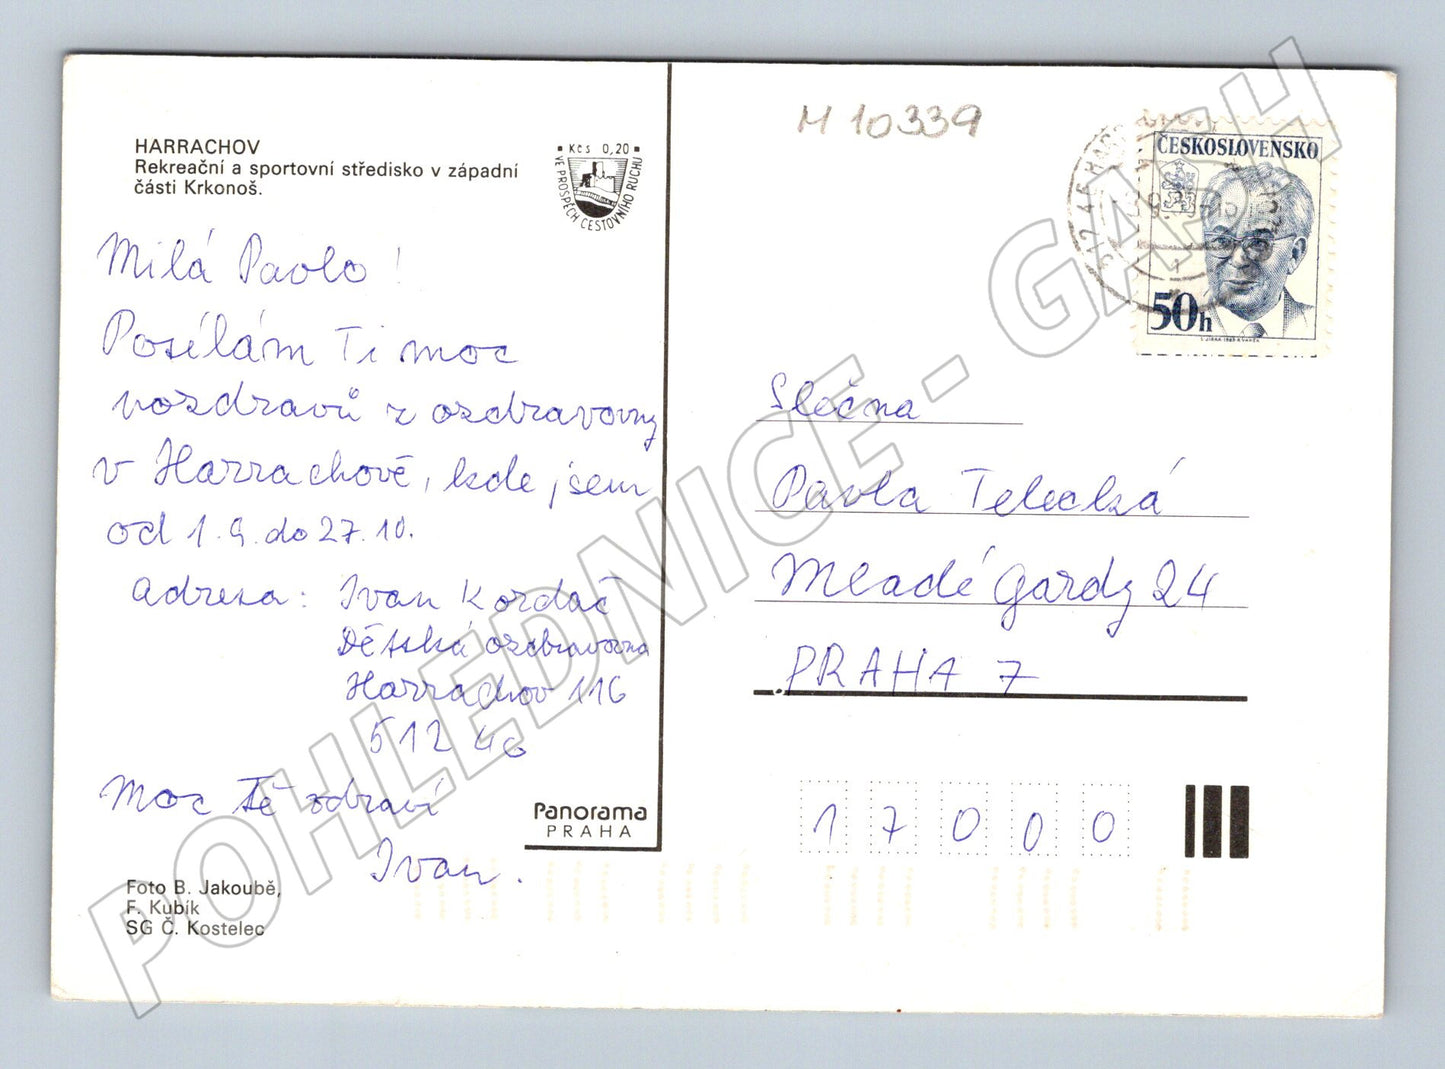 M 10339
HARRACHOV
Rekreační a sportovní středisko v západní
části Krkonoš.
Kčs 0,20
VE PROSPĚCH CESTOVNÍHO RUCHU
ČESKOSLOVENSKO
50h
Milá Pavlo!
Posílám Ti moc
pozdravů z ozdravovny
v Harrachově, kde jsem
od 1.9. do 27.10.
Adresa: Ivan Kordač
Dětská ozdravovna
Harrachov 116
512 46
Moc Tě zdraví
Ivan.
Slečna
Pavla Telecká
Mladé gardy 24
PRAHA 7
17000
Panorama
PRAHA
Foto B. Jakoubě,
F. Kubík
SG Č. Kostelec
POHLEDNICE - GASH